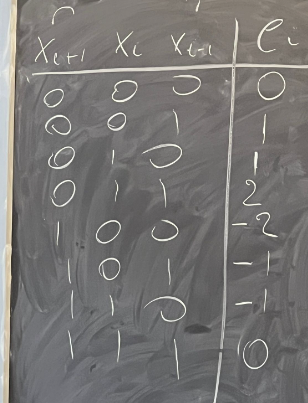 X_{i+1} X_i X_{i-1} e_i
0 0 0 0
0 0 1 1
0 1 0 1
0 1 1 2
1 0 0 -2
1 0 1 -1
1 1 0 -1
1 1 1 0